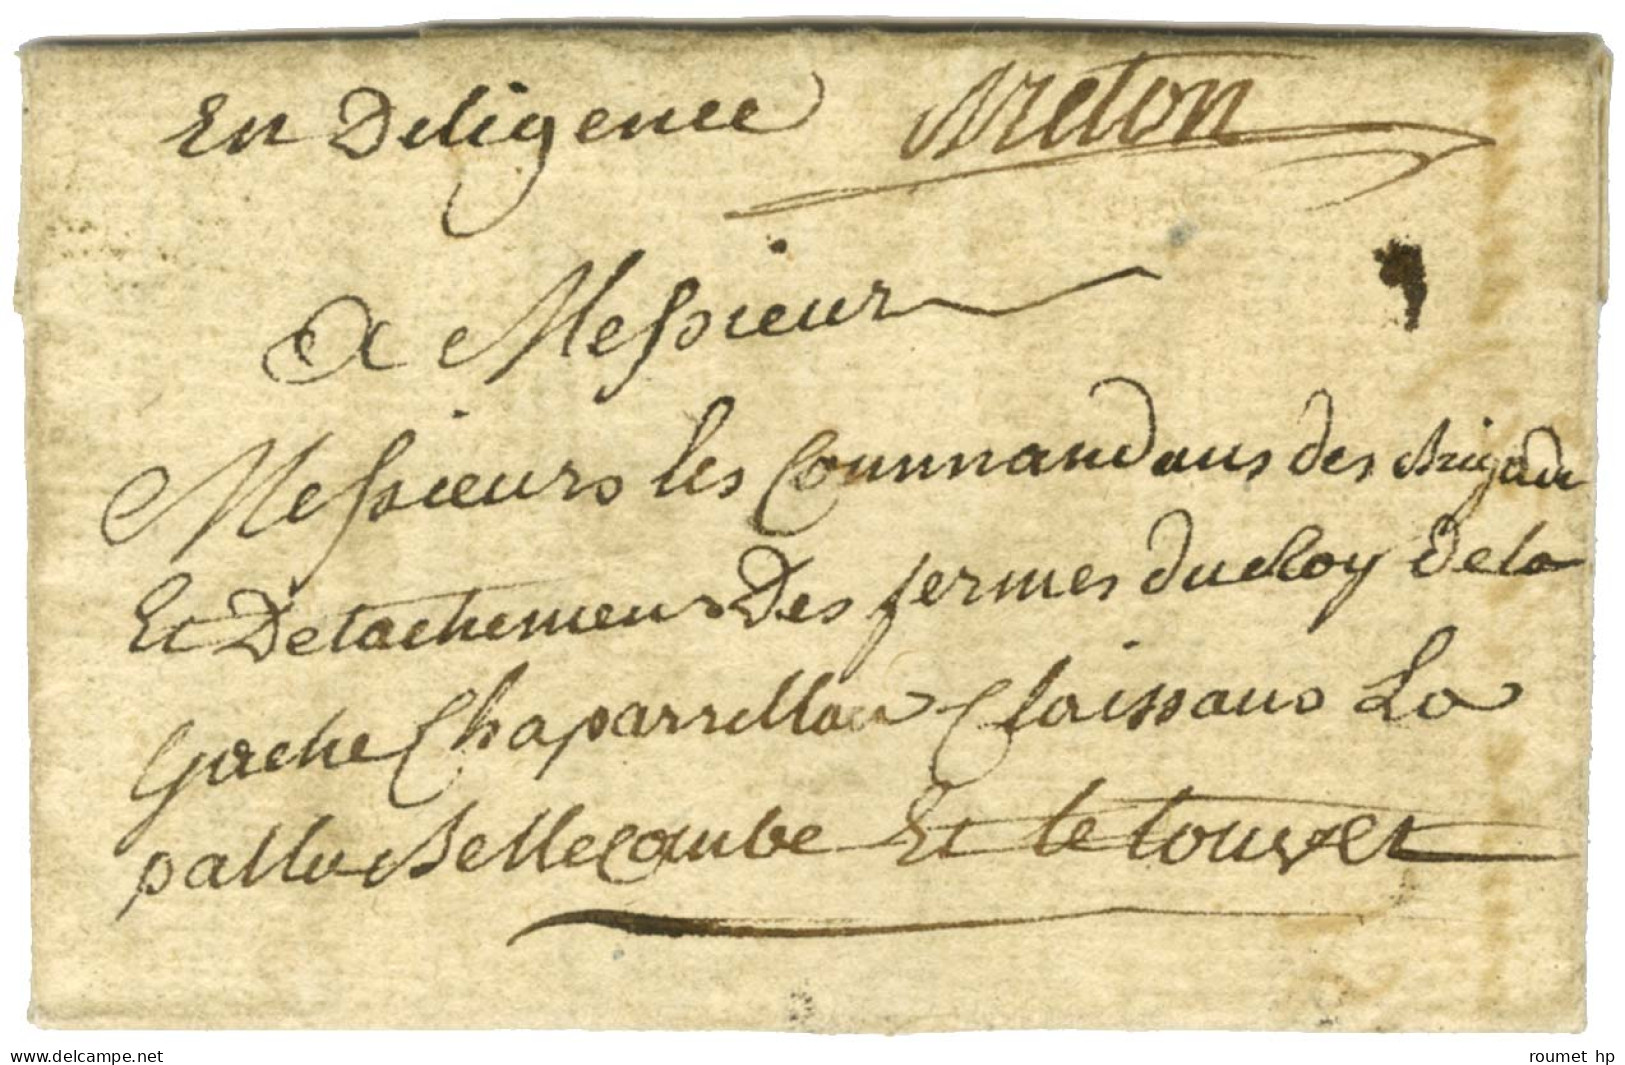 En Deligence Breton
A Messieur
Messieurs les Commandans des Brigade
Et Detachemens Des fermes du Roy de la
Gache Chaparrillan Claissans La
palla Bellecombe Et le touvet
www.delcampe.net
roumet hp